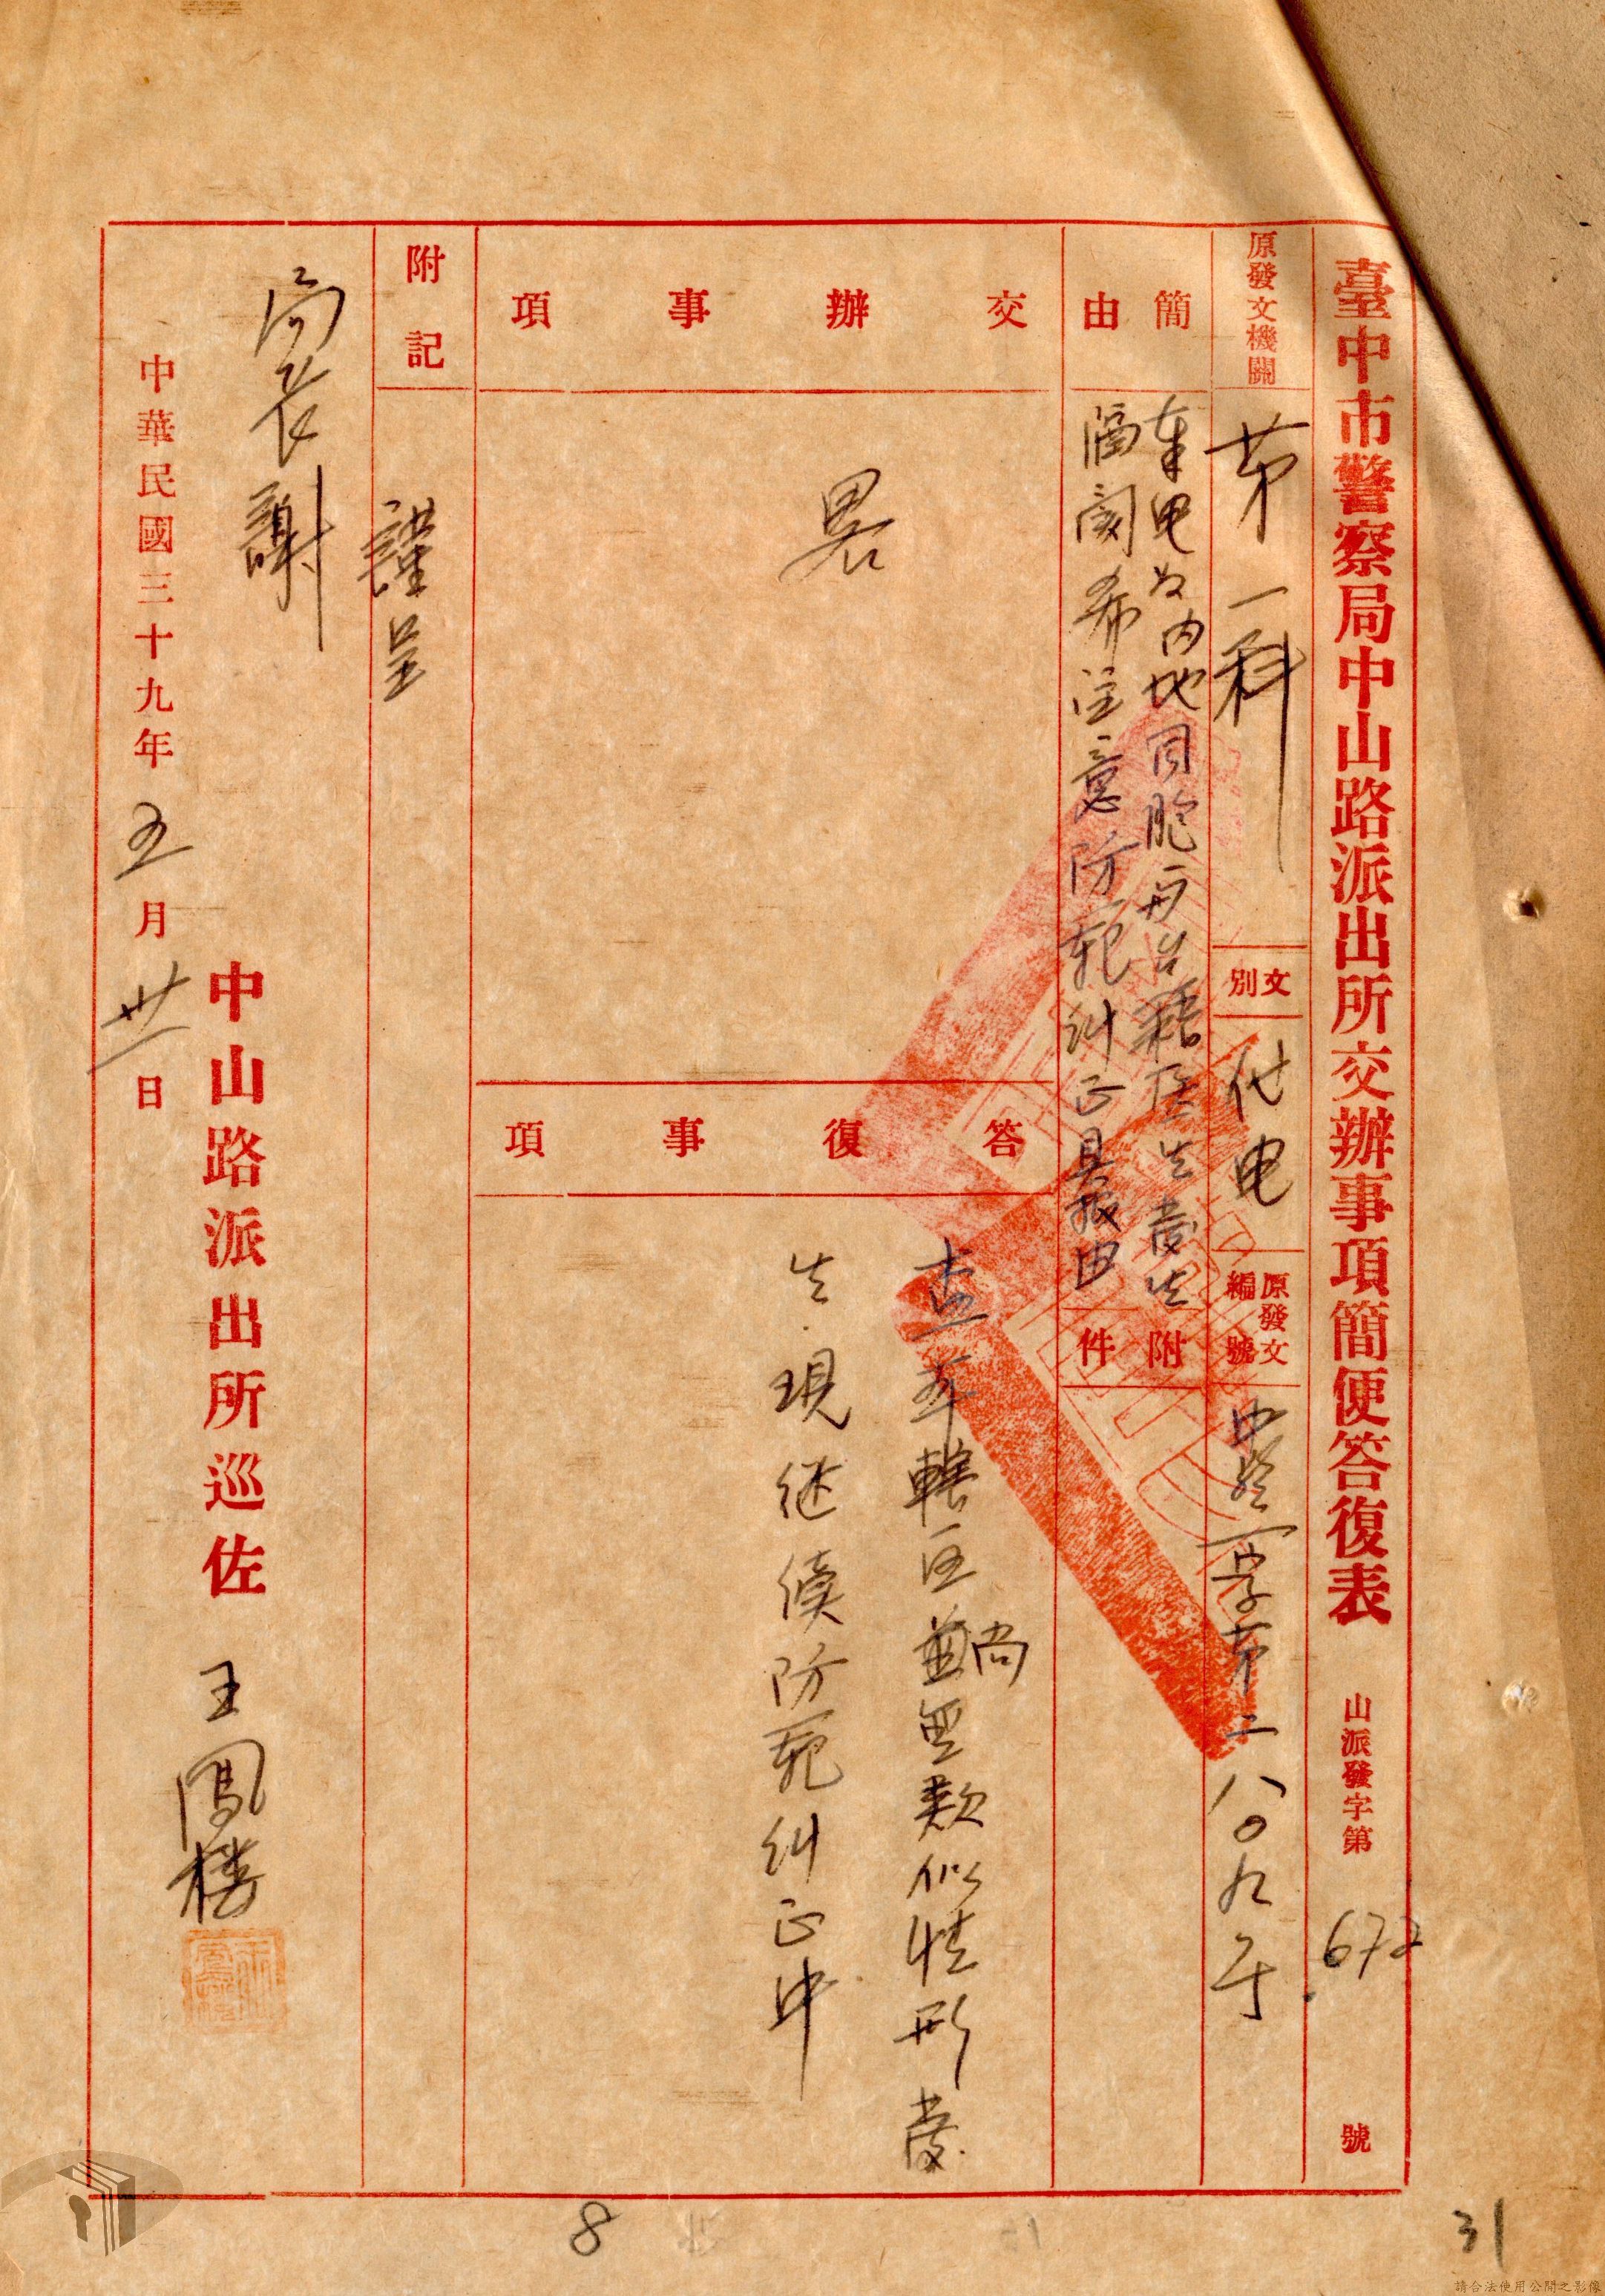 臺中市警察局中山路派出所交辦事項簡便答復表 山派發字第 672 號
原發文機關 第一科 文別 代电 原發文編號 中警一字第二八〇九号
簡由 奉电为内地同胞與台籍医生發生
隔閡希注意防範糾正具報由
附件
交辦事項
畧
答復事項
查本轄区尚無類似情形發
生現继續防範糾正中
附記
謹呈
局長謝
中山路派出所巡佐 王鳳樓
中華民國三十九年五月卅一日
8
31
請合法使用公開之影像